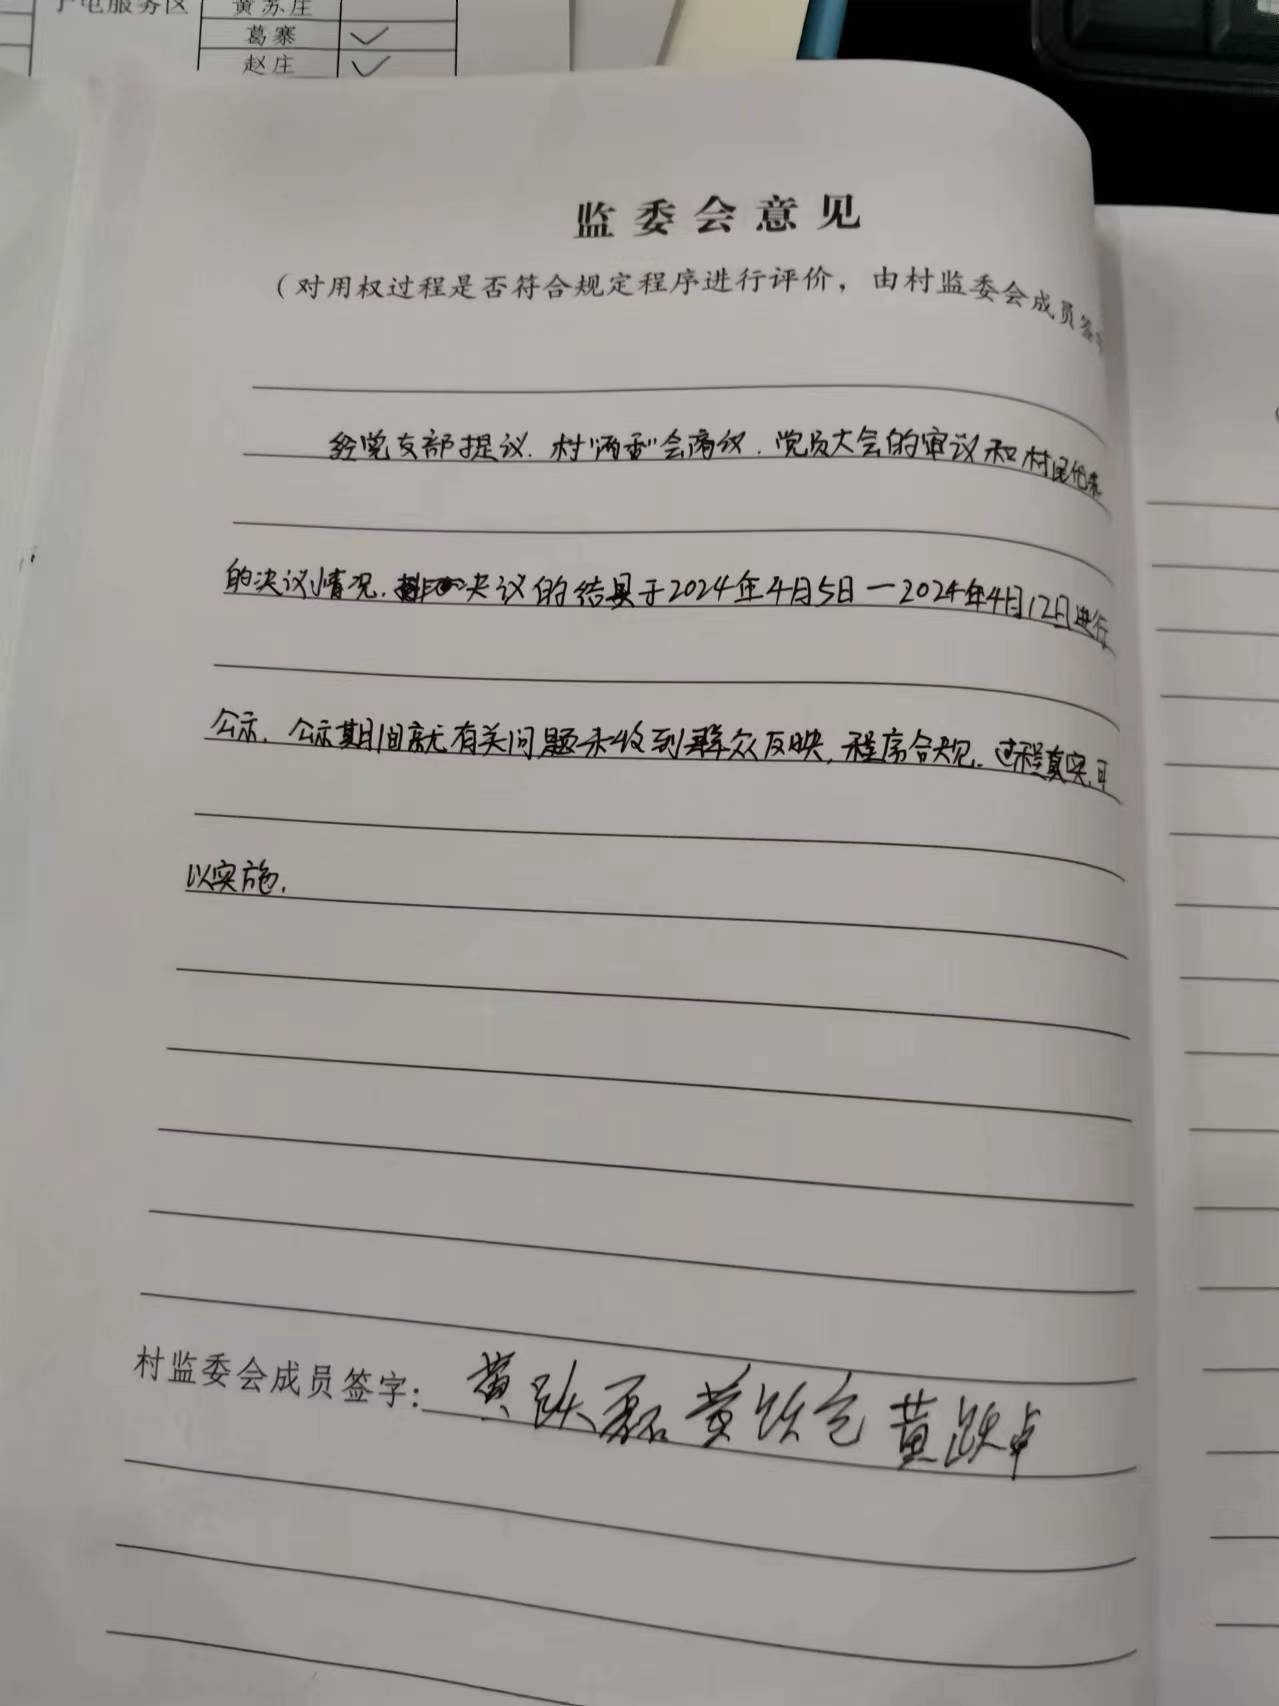 子电服务区
黄苏庄
葛寨
赵庄
监委会意见
（对用权过程是否符合规定程序进行评价，由村监委会成员签字
经党支部提议、村“两委”会商议、党员大会的审议和村民代表
的决议情况、决议的结果于2024年4月5日一2024年4月12日进行
公示、公示期间就有关问题未收到群众反映，程序合规、过程真实、可
以实施.
村监委会成员签字：黄跃磊 黄跃 黄跃卓